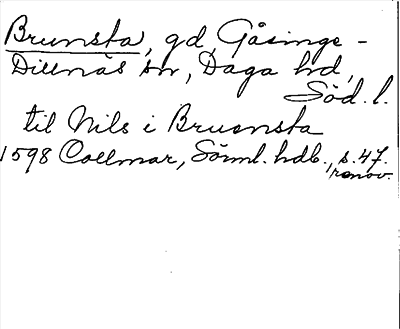 Brunsta, gd, Gåsinge-
Dillnäs sn, Daga hd,
Söd. l.
til Nils i Brunsta
1598 Collmar, Sörml. hdb., s. 47.
renov.